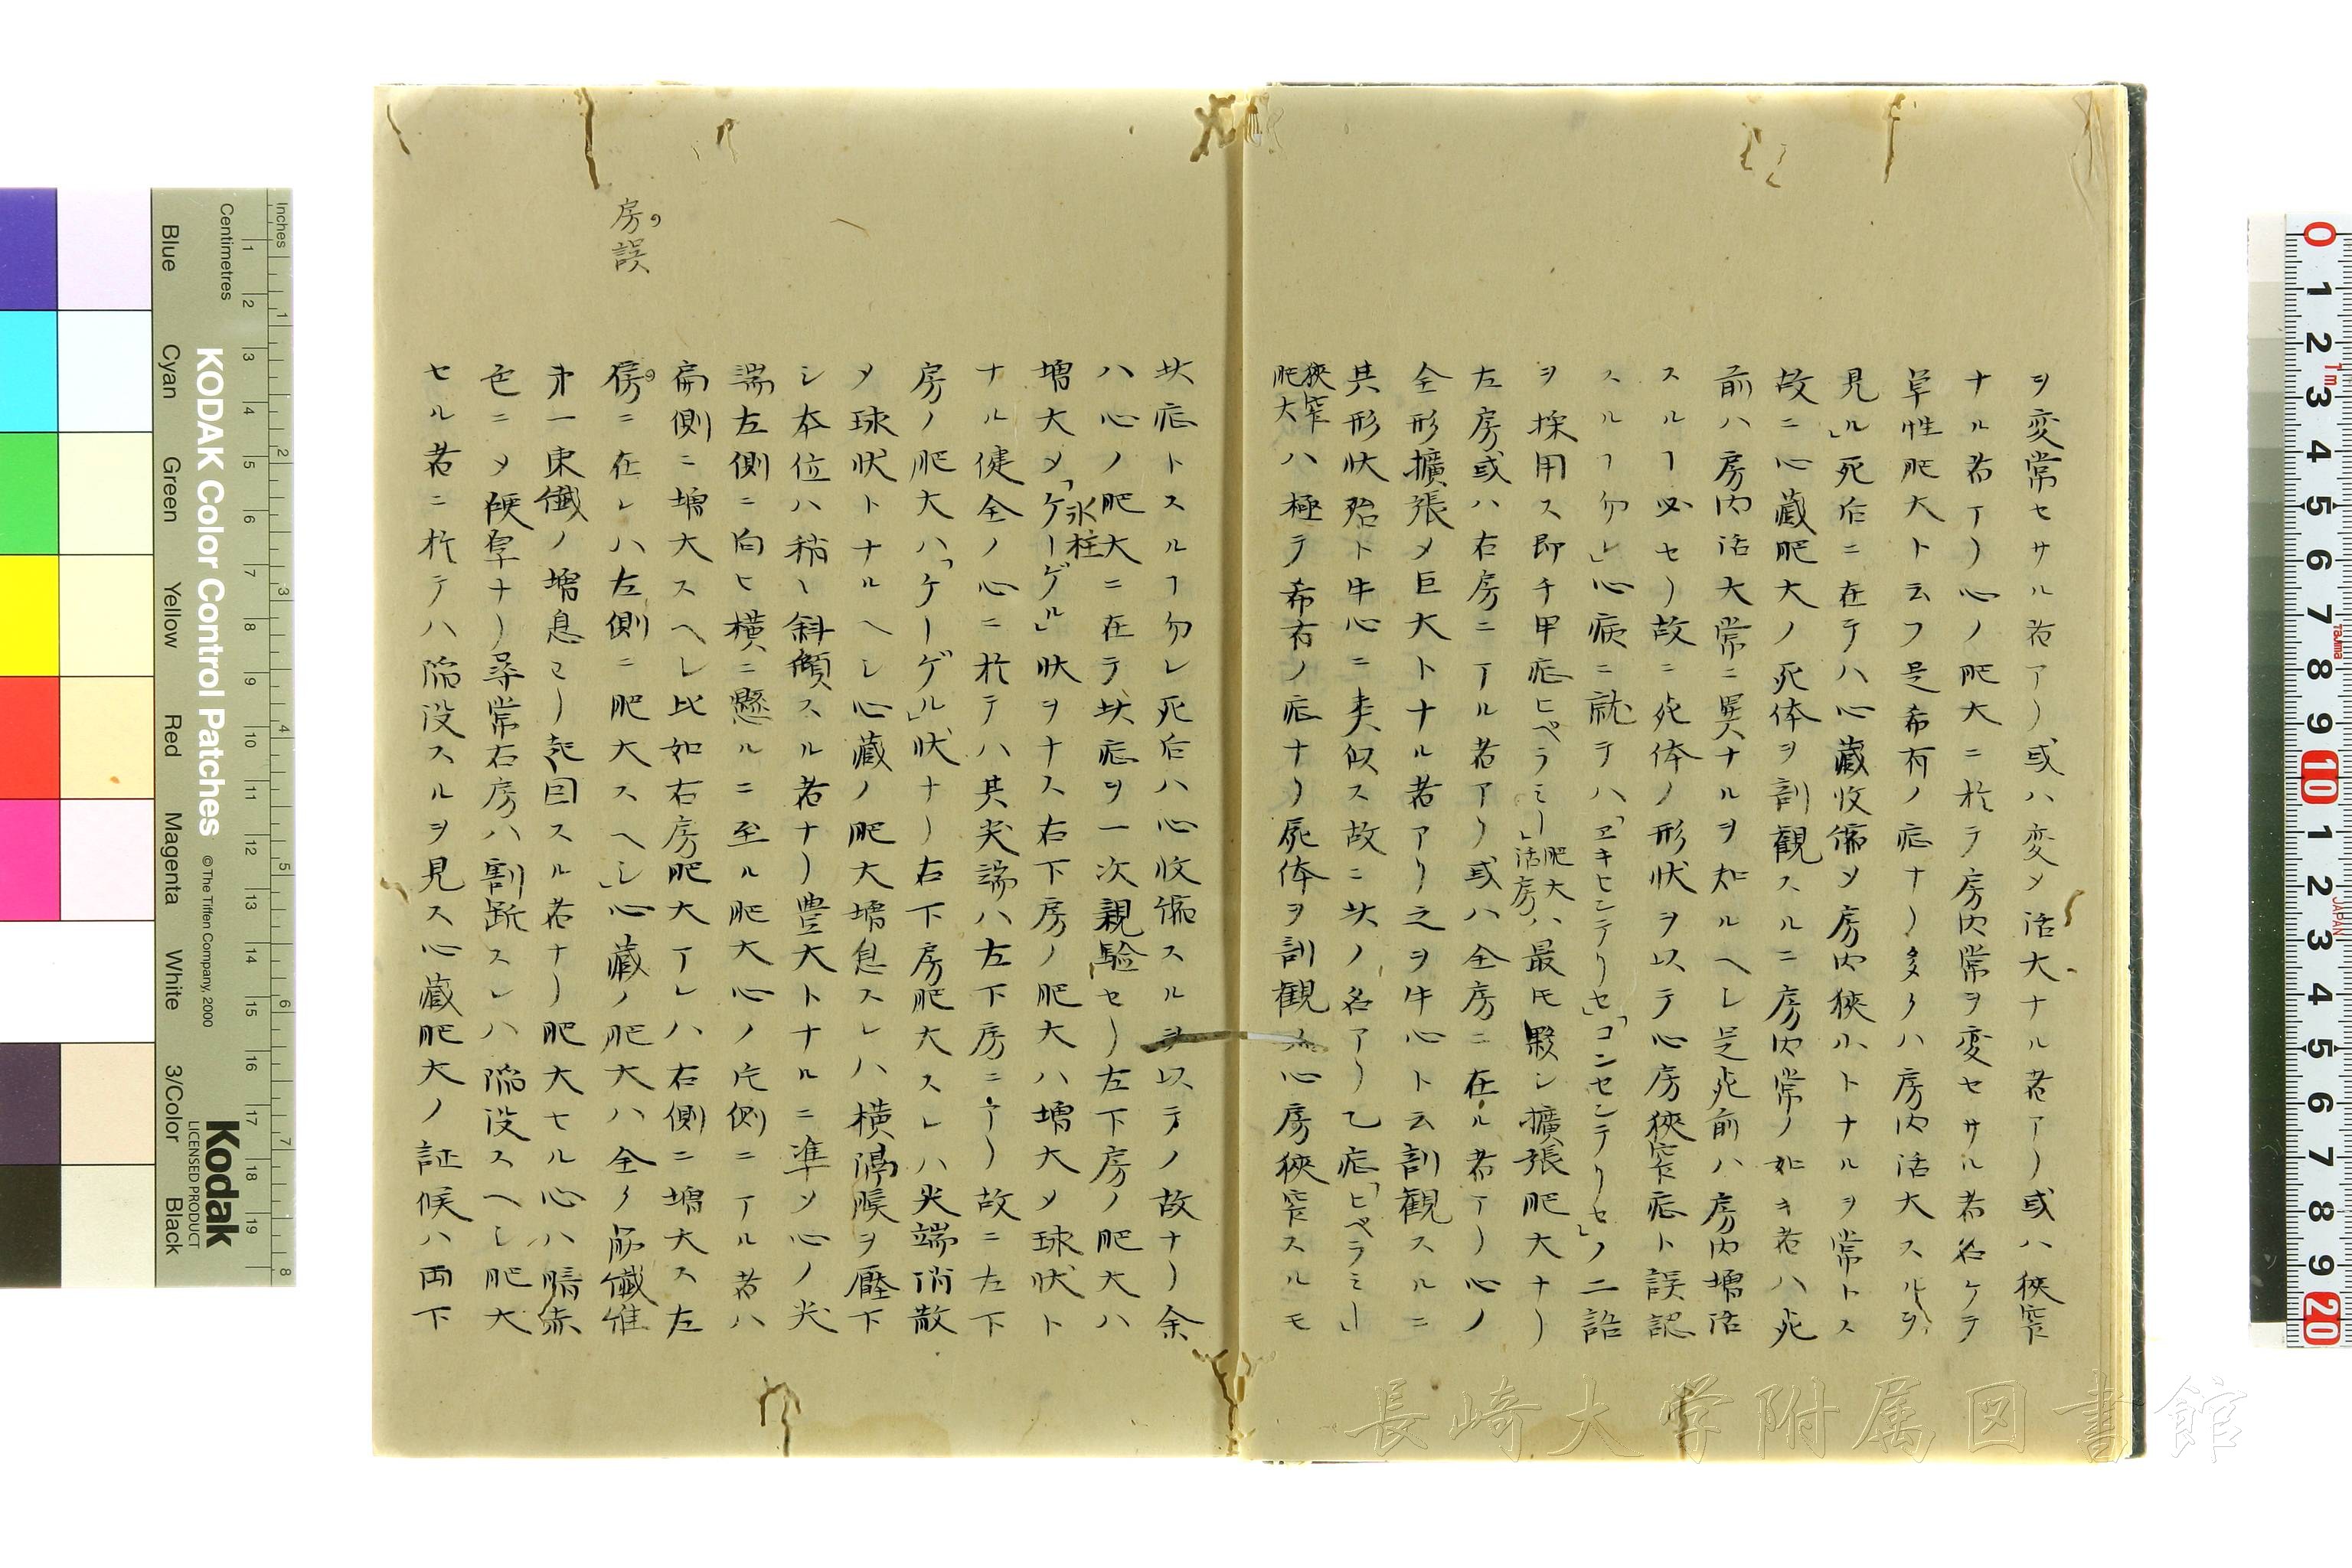 ヲ変常セサル者アリ或ハ変メ活大ナル者アリ或ハ狹窄
ナル者アリ心ノ肥大ニ於テ房内常ヲ変セサル者名ケテ
単性肥大ト云フ是希有ノ症ナリ多クハ房内活大スルヲ
見ル」死后ニ在テハ心藏收縮メ房内狹小トナルヲ常トス
故ニ心藏肥大ノ死体ヲ剖観スルニ房内常ノ如キ者ハ死
前ハ房内活大常ニ異ナルヲ知ルヘレ是死前ハ房内増活
スルヿ必セリ故ニ死体ノ形状ヲ以テ心房狹窄症ト誤認
スルヿ勿レ」心病ニ就テハ「ヱキセンテリセ」「コンセンテリセ」ノ二語
ヲ採用ス即チ甲症ヒペラミー」肥大活房ハ最モ夥シ擴張肥大ナリ
左房或ハ右房ニアル者アリ或ハ全房ニ在ル者アリ心ノ
全形擴張メ巨大トナル者アリ之ヲ牛心ト云剖観スルニ
其形状殆ト牛心ニ類似ス故ニ此ノ名アリ乙症「ヒペラミー」
狹窄肥大ハ極テ希有ノ症ナリ屍体ヲ剖観メ心房狹窄スルモ
此症トスルヿ勿レ死后ハ心收縮スルヲ以テノ故ナリ余
ハ心ノ肥大ニ在テ此症ヲ一次親驗セリ左下房ノ肥大ハ
氷柱
増大メ「ケーゲル」状ヲナス右下房ノ肥大ハ増大メ球状ト
ナル健全ノ心ニ於テハ其尖端ハ左下房ニアリ故ニ左下
房ノ肥大ハ「ケーゲル」状ナリ右下房肥大スレハ尖端消散
メ球状トナルヘシ心藏ノ肥大増息スレハ横隔膜ヲ壓下
シ本位ハ稍〻斜傾スル者ナリ豊大トナルニ準メ心ノ尖
端左側ニ向ヒ横ニ懸ルニ至ル肥大心ノ片側ニアル者ハ
扁側ニ増大スヘレ比如右房肥大アレハ右側ニ増大ス左
傍ニ在レハ左側ニ肥大スヘシ」心藏ノ肥大ハ全ク筋纎維
房誤
第一束纎ノ増息ヨリ起因スル者ナリ肥大セル心ハ暗赤
色ニメ硬固ナリ尋常右房ハ割断スレハ陥没スヘレ肥大
セル者ニ於テハ陥没スルヲ見ス心藏肥大ノ証候ハ両下
Inches
Centimetres
KODAK Color Control Patches
© The Tiffen Company, 2000
Kodak
LICENSED PRODUCT
Blue
Cyan
Green
Yellow
Red
Magenta
White
3/Color
Black
長崎大学附属図書館